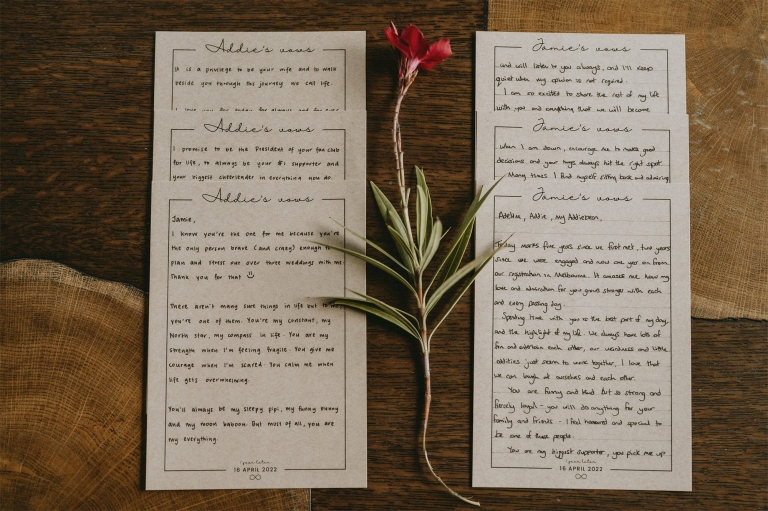 Addie's vows
It is a privilege to be your wife and to walk
beside you through this journey we call life.
I love you for today for always and for ever
Addie's vows
I promise to be the President of your fan club
for life, to always be your #1 supporter and
your biggest cheerleader in everything you do.
Addie's vows
Jamie,
I know you're the one for me because you're
the only person brave (and crazy) enough to
plan and stress our over three weddings with me
Thank you for that ☺
There aren't many sure things in life but to me
you're one of them. You're my constant, my
North star, my compass in life. You are my
strength when I'm feeling fragile. You give me
courage when I'm scared. You calm me when
life gets overwhelming.
You'll always be my sleepy pipi, my funny bunny
and my moon baboon. But most of all, you are
my everything.
16 APRIL 2022
Jamie's vows
and will listen to you always, and I'll keep
quiet when my opinion is not required.
I am so excited to share the rest of my life
with you and everything that we will become
Jamie's vows
When I am down, encourage me to make good
decisions and your hugs always hit the right spot.
Many times I find myself sitting back and admiring
Jamie's vows
Adeline, Addie, my Addiebean,
Today marks five years since we first met, two years
since we were engaged and now one year on from
our registration in Melbourne. It amazes me how my
love and admiration for you grows stronger with each
and every passing day.
Spending time with you is the best part of my day,
and the highlight of my life. We always have lots of
fun and entertain each other, our weirdness and little
oddities just seem to work together, I love that
we can laugh at ourselves and each other.
You are funny and kind but so strong and
fiercely loyal - you will do anything for your
family and friends - I feel honoured and special to
be one of those people.
You are my biggest supporter, you pick me up
16 APRIL 2022